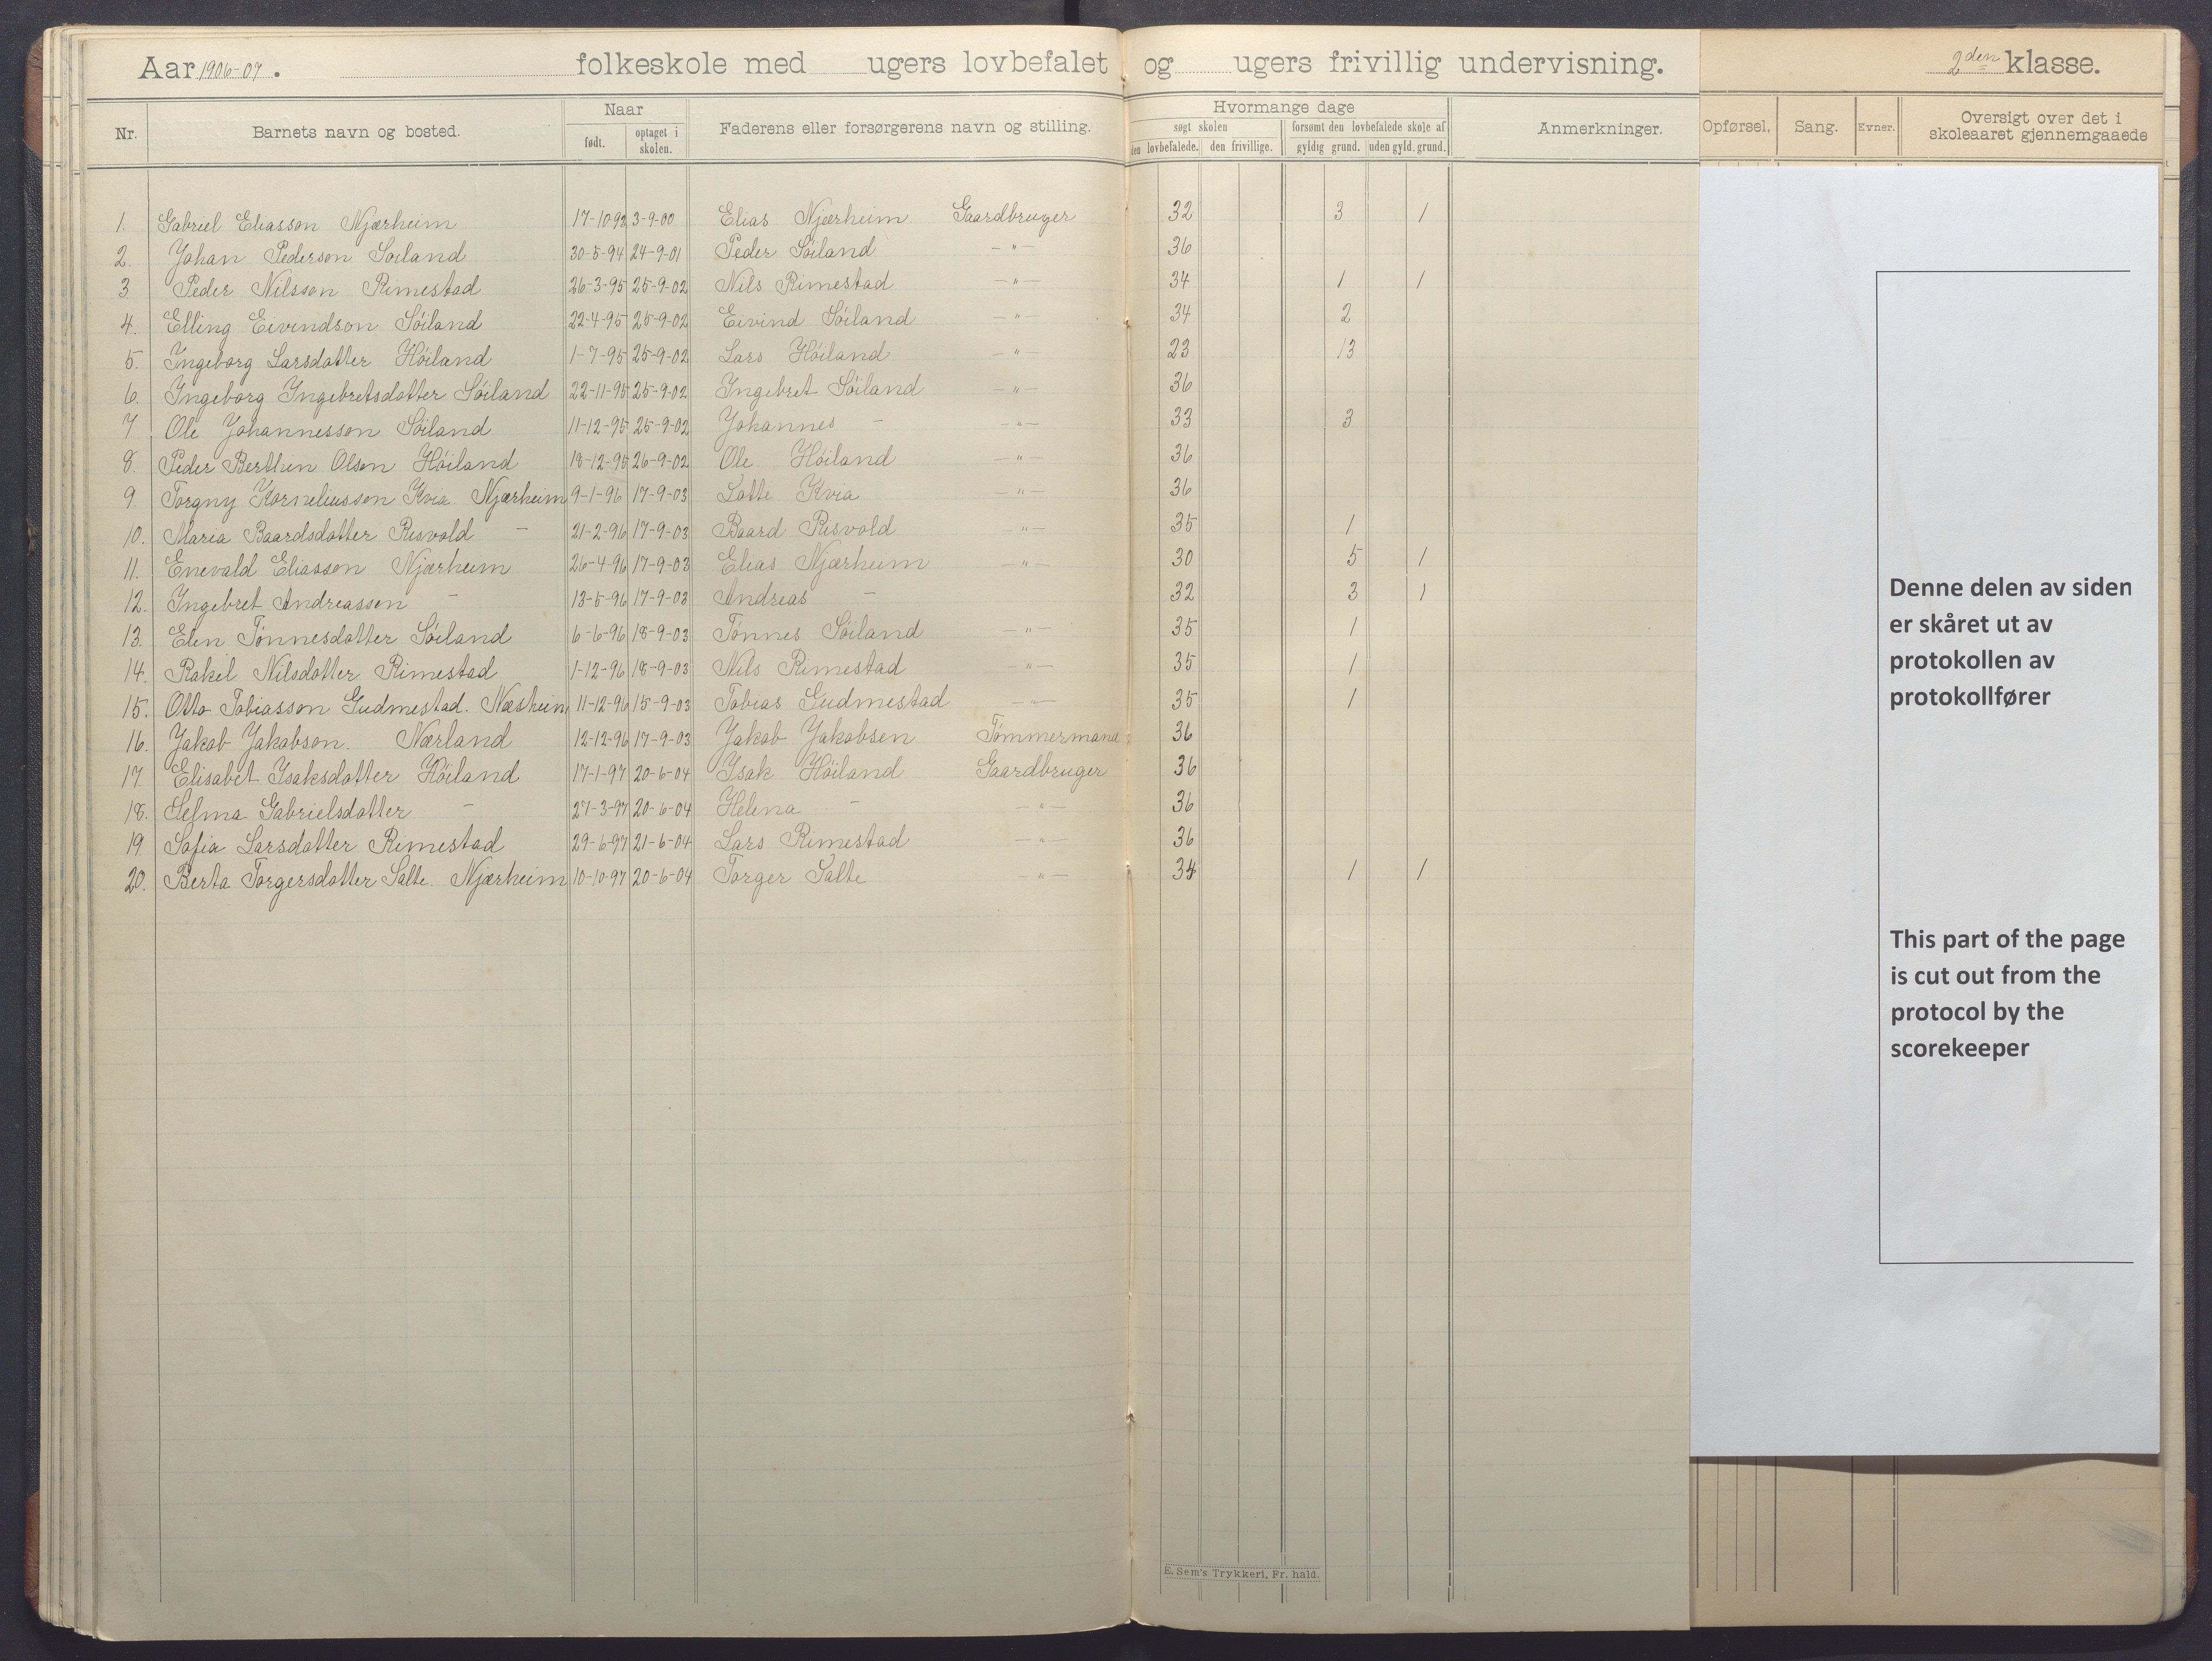 Aar 1906-07. folkeskole med ugers lovbefalet og ugers frivillig undervisning. 2den klasse.
Nr. Barnets navn og bosted. Naar født. optaget i skolen. Faderens eller forsørgerens navn og stilling. Hvormange dage søgt skolen den lovbefalede. den frivillige. forsømt den lovbefalede skole af gyldig grund. uden gyld. grund. Anmerkninger. Opførsel. Sang. Evner. Oversigt over det i skoleaaret gjennemgaaede
1. Gabriel Eliasson Njærheim 17-10-92 3-9-00 Elias Njærheim Gaardbruger 32 3 1
2. Johan Pederson Soiland 30-5-94 24-9-01 Peder Söiland -"- 36
3 Peder Nilsson Rimestad 26-3-95 25-9-02 Nils Rimestad -"- 34 1 1
4. Elling Eivindson Söiland 22-4-95 25-9-02 Eivind Söiland -"- 34 2
5. Ingeborg Larsdatter Höiland 1-7-95 25-9-02 Lars Höiland -"- 23 13
6. Ingeborg Ingebretsdatter Söiland 22-11-95 25-9-02 Ingebret Söiland -"- 36
7 Ole Johannesson Söiland 11-12-95 25-9-02 Johannes - -"- 33 3
8. Peder Berthin Olsen Höiland 18-12-95 26-9-02 Ole Höiland -"- 36
9. Torgny Korneliusson Kvia. Njærheim 9-1-96 17-9-03 Lotte Kvia -"- 36
10. Maria Baardsdatter Risvold - 21-2-96 17-9-03 Baard Risvold -"- 35 1
11. Enevald Eliasson Njærheim 26-4-96 17-9-03 Elias Njærheim -"- 30 5 1
12. Ingebret Andreasson - 13-5-96 17-9-03 Andreas - 32 3 1
13. Elen Tönnesdatter Söiland 6-6-96 18-9-03 Tönnes Söiland -"- 35 1
14. Rakel Nilsdatter Rimestad 1-12-96 18-9-03 Nils Rimestad -"- 35 1
15. Otto Tobiasson Gudmestad. Næsheim 11-12-96 15-9-03 Tobias Gudmestad -"- 35 1
16. Jakob Jakobson. Nærland 12-12-96 17-9-03 Jakob Jakobsen Tömmermand 36
17 Elisabet Isaksdatter Höiland 17-1-97 20-6-04 Isak Höiland Gaardbruger 36
18. Selma Gabrielsdatter - 27-3-97 20-6-04 Helena - -"- 36
19 Sofia Larsdatter Rimestad 29-6-97 21-6-04 Lars Rimestad -"- 36
20. Berta Torgersdatter Salte. Njærheim 10-10-97 20-6-04 Torger Salte -"- 34 1 1
Denne delen av siden
er skåret ut av
protokollen av
protokollfører
This part of the page
is cut out from the
protocol by the
scorekeeper
E. Sem's Trykkeri, Fr. hald.